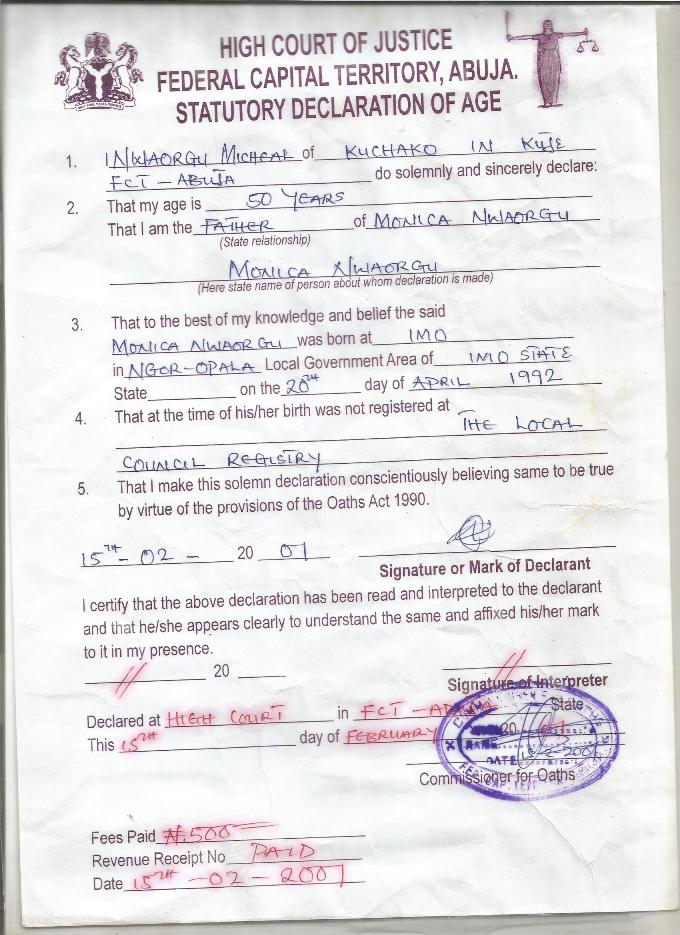 HIGH COURT OF JUSTICE
FEDERAL CAPITAL TERRITORY, ABUJA.
STATUTORY DECLARATION OF AGE
1. I NWAORGU MICHEAL of KUCHAKO IN KUJE
FCT - ABUJA do solemnly and sincerely declare:
2. That my age is 50 YEARS
That I am the FATHER of MONICA NWAORGU
(State relationship)
MONICA NWAORGU
(Here state name of person about whom declaration is made)
3. That to the best of my knowledge and belief the said
MONICA NWAORGU was born at IMO
in NGOR-OPALA Local Government Area of IMO STATE
State on the 20TH day of APRIL 1992
4. That at the time of his/her birth was not registered at
THE LOCAL
COUNCIL REGISTRY
5. That I make this solemn declaration conscientiously believing same to be true
by virtue of the provisions of the Oaths Act 1990.
15TH - 02 - 20 07
Signature or Mark of Declarant
I certify that the above declaration has been read and interpreted to the declarant
and that he/she appears clearly to understand the same and affixed his/her mark
to it in my presence.
20
Signature of Interpreter
Declared at HIGH COURT in FCT - ABUJA State
This 15TH day of FEBRUARY 20
NAME
DATE
Commissioner for Oaths
Fees Paid ₦.500
Revenue Receipt No PAID
Date 15TH - 02 - 2007